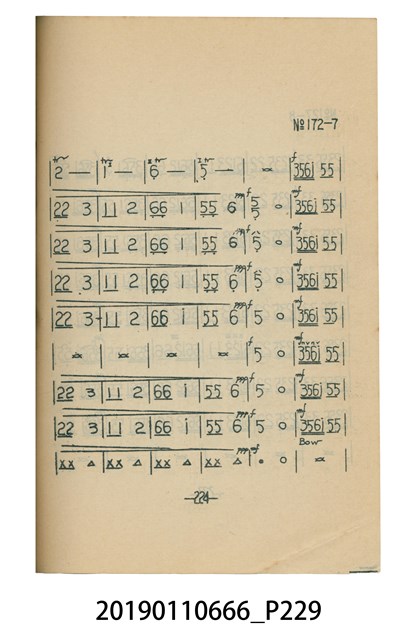 №172-7
2 — | 1 — | 6 — | 5 — | × | 3561 55
22 3 | 11 2 | 66 1 | 55 6 | 5 o | 3561 55
22 3 | 11 2 | 66 1 | 55 6 | 5 o | 3561 55
22 3 | 11 2 | 66 1 | 55 6 | 5 o | 3561 55
22 3 | 11 2 | 66 1 | 55 6 | 5 o | 3561 55
× | × | × | × | 5 o | 3561 55
22 3 | 11 2 | 66 1 | 55 6 | 5 o | 3561 55
22 3 | 11 2 | 66 1 | 55 6 | 5 o | 3561 55
Bow
xx △ | xx △ | xx △ | xx △ | • o | ×
—224—
20190110666_P229